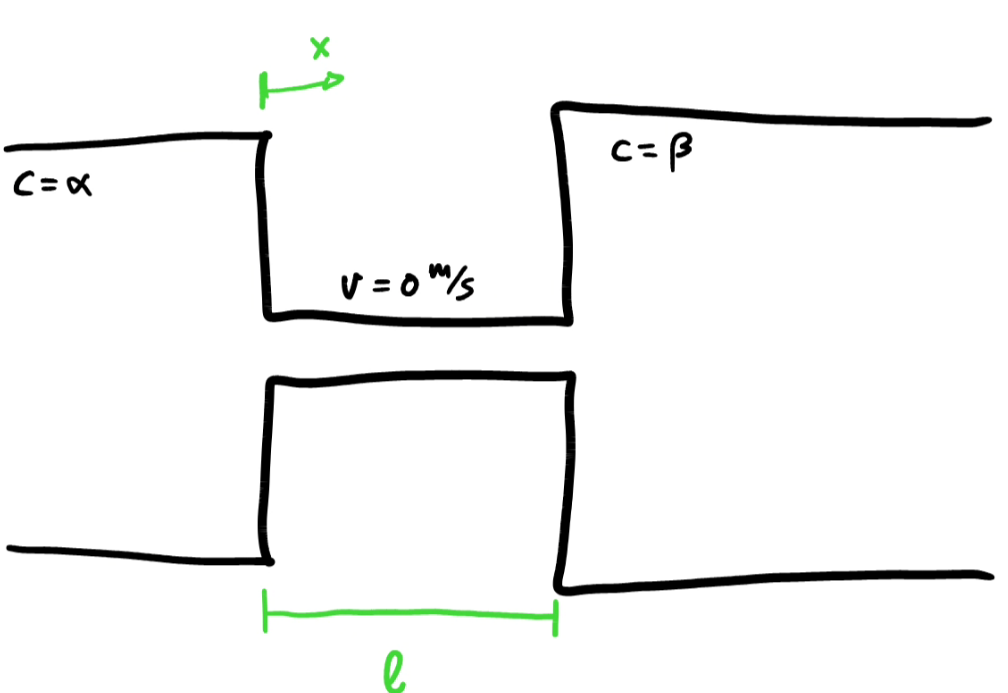 x
c = α
c = β
v = 0 m/s
l